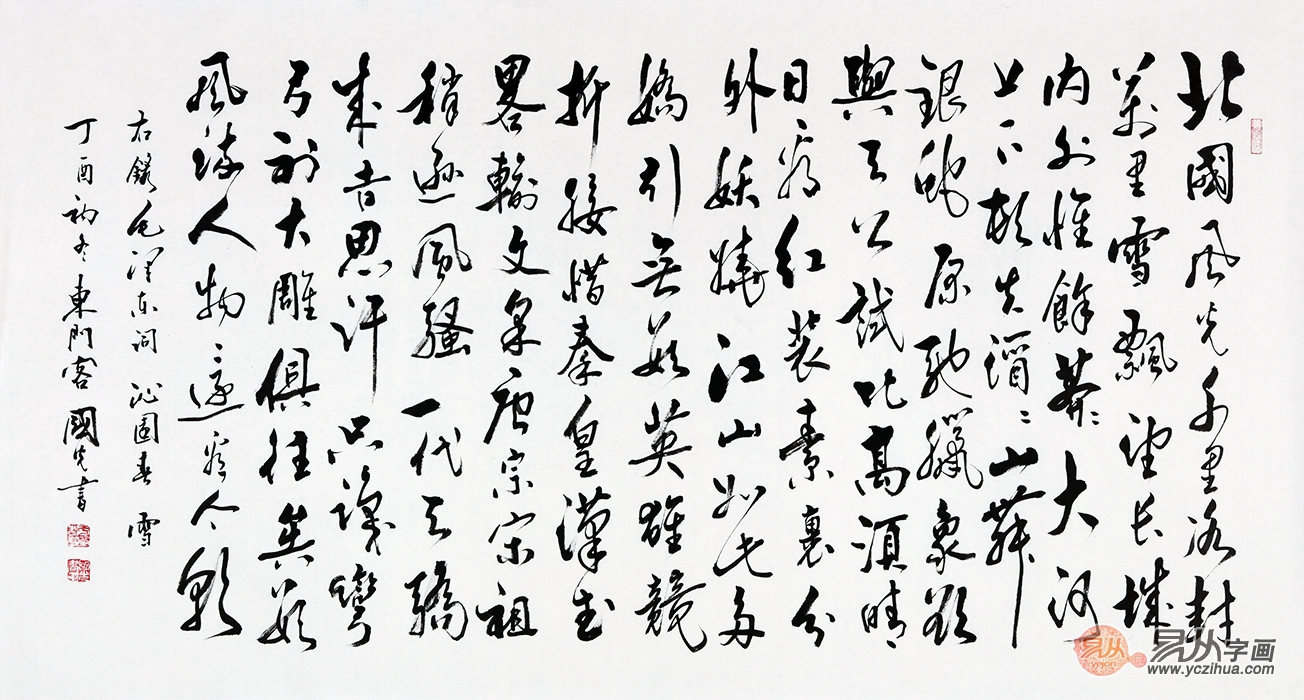 北國風光千里冰封
萬里雪飄望長城
内外惟餘莽々大河
上下頓失滔々山舞
銀蛇原馳臘象欲
與天公試比高須晴
日看紅裝素裹分
外妖嬈江山如此多
嬌引無數英雄競
折腰惜秦皇漢武
畧輸文采唐宗宋祖
稍遜風騷一代天驕
成吉思汗只識彎
弓射大雕俱往矣數
風流人物還看今朝
右錄毛澤東詞 沁園春 雪
丁酉初冬東門客國先書
易从字画
www.yczihua.com